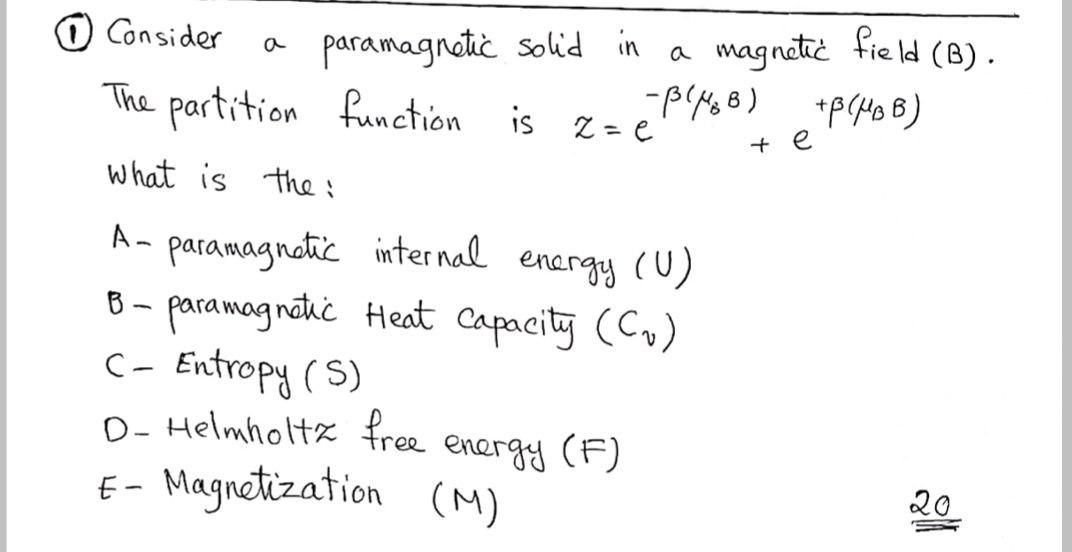 ① Consider a paramagnetic solid in a magnetic field (B).
The partition function is z = e^{-β(μ_B B)} + e^{+β(μ_B B)}
What is the :
A- paramagnetic internal energy (U)
B- paramagnetic Heat Capacity (C_v)
C- Entropy (S)
D- Helmholtz free energy (F)
E- Magnetization (M)
20